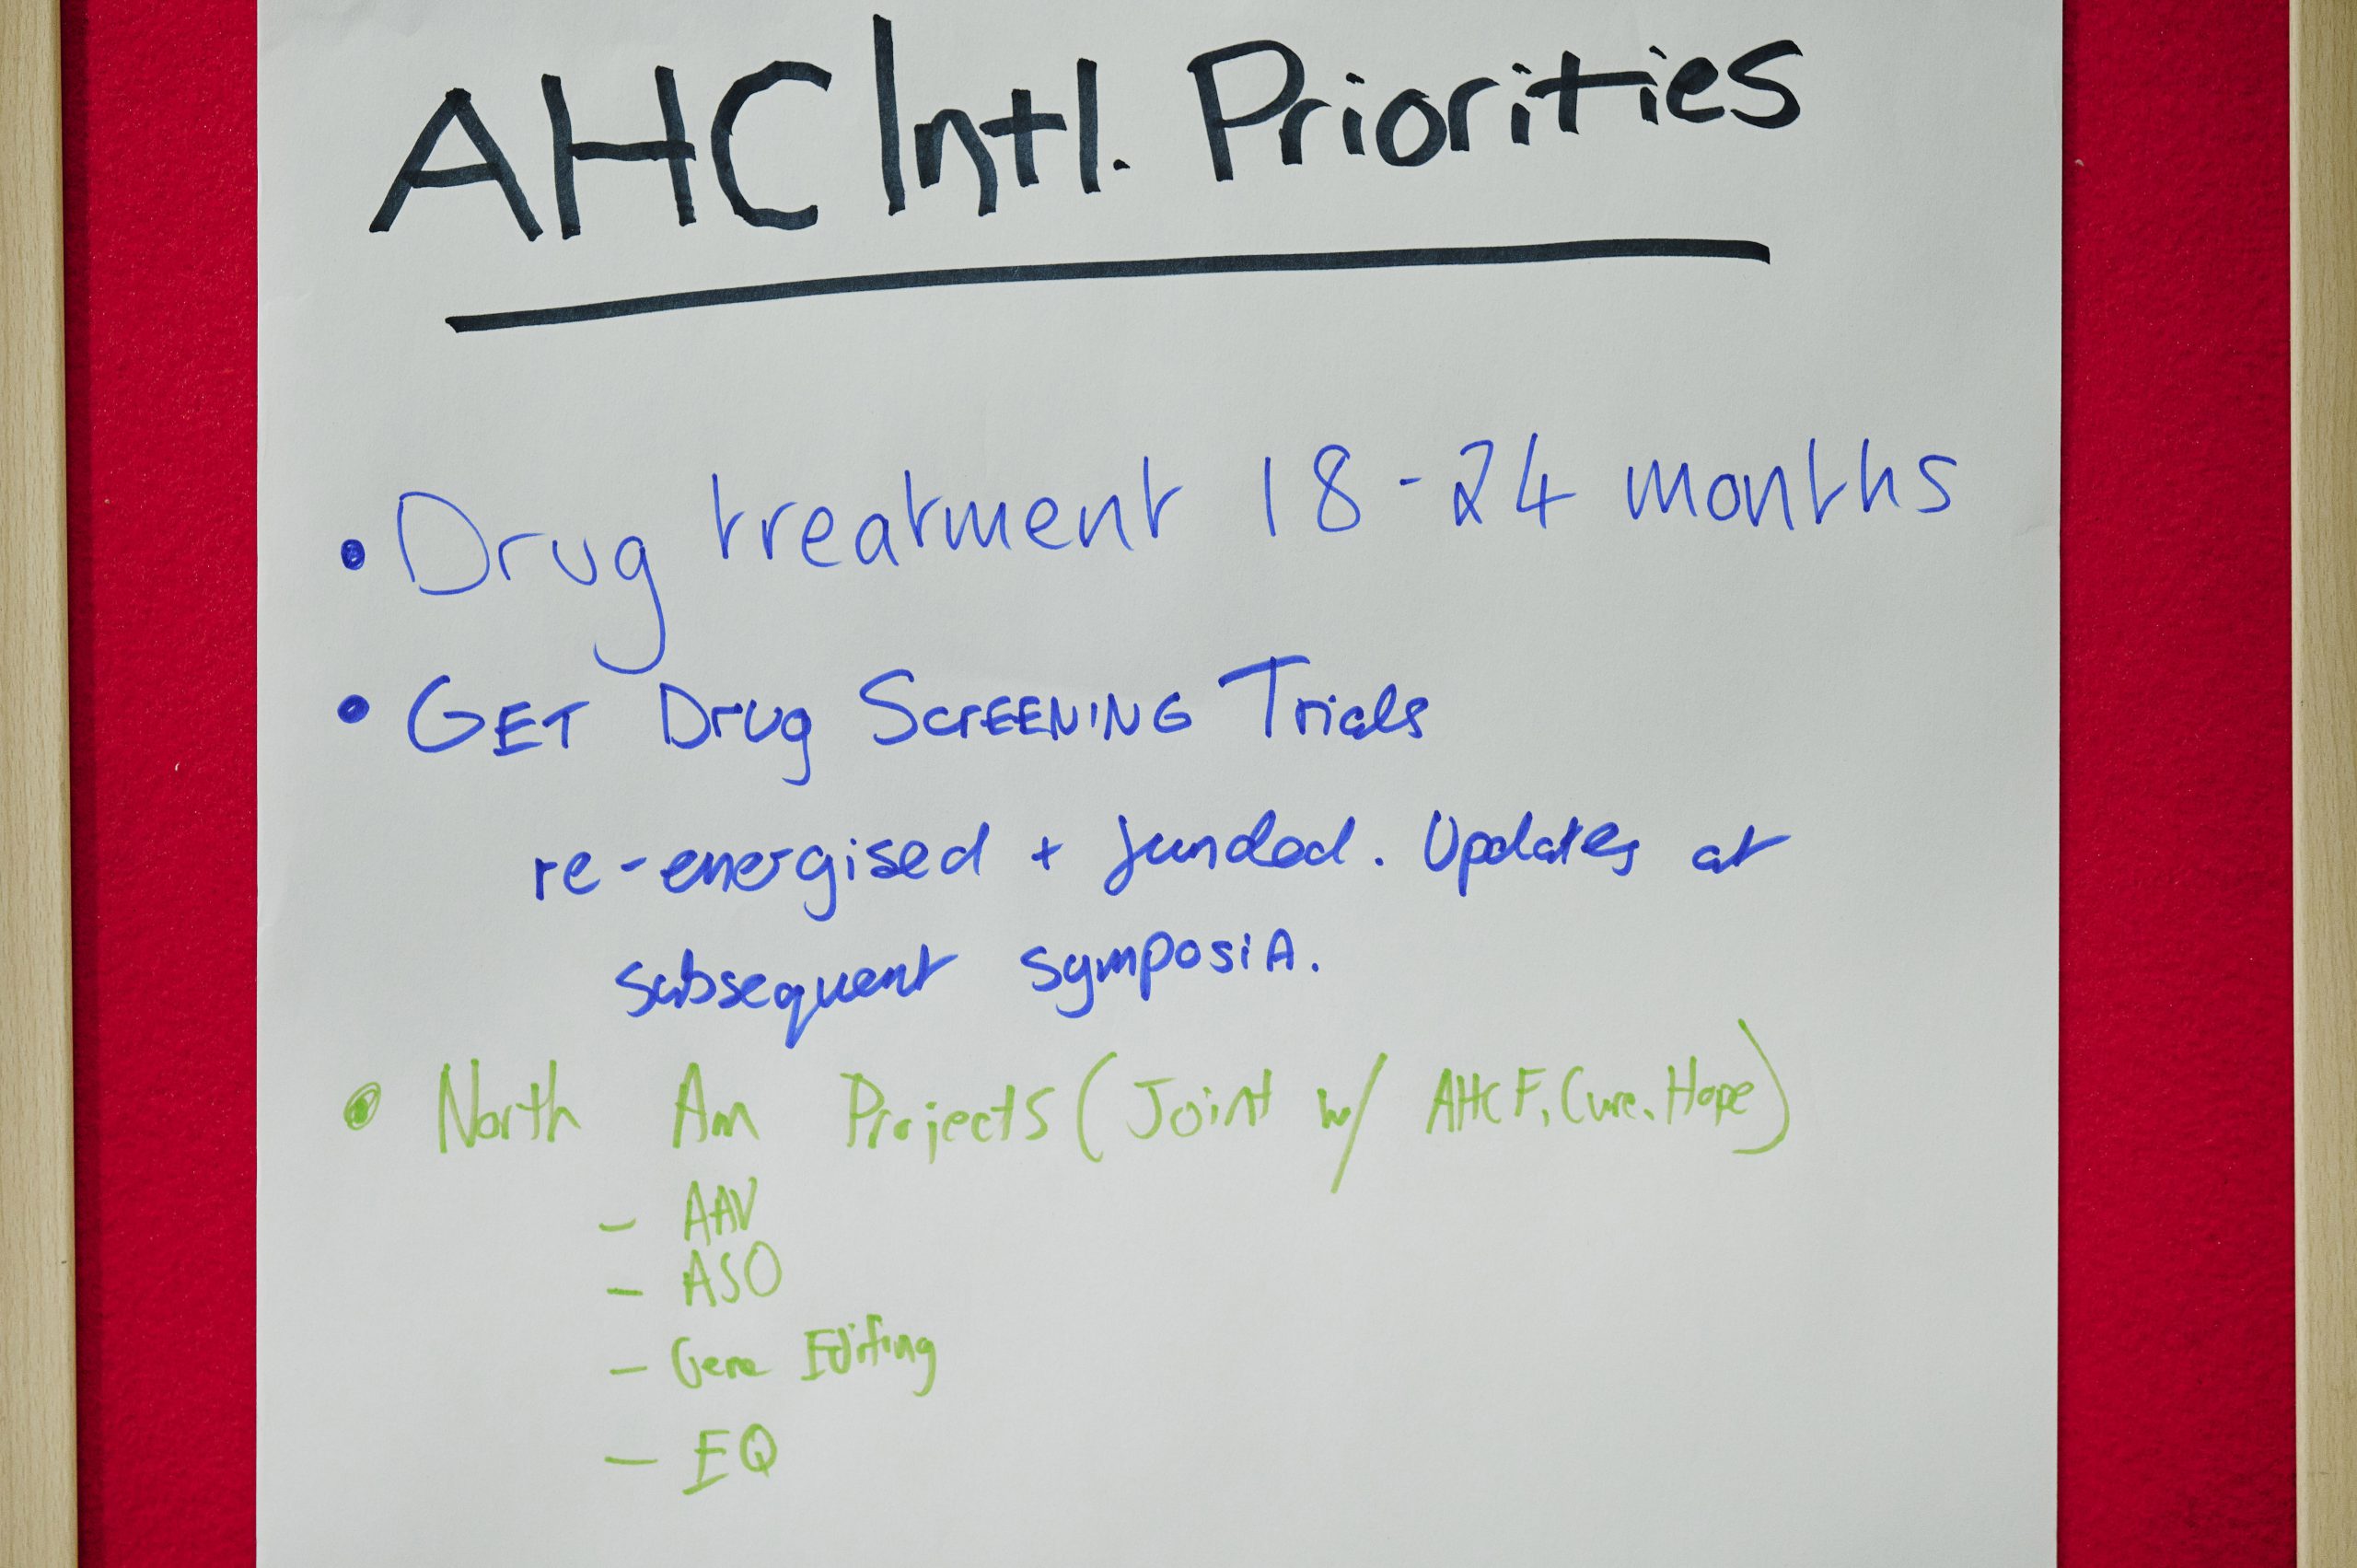 AHC Intl. Priorities
• Drug treatment 18-24 months
• GET Drug SCrEENING Trials
re-energised + funded. Updates at
subsequent symposiA.
• North Am Projects (Joint w/ AHCF, Cure, Hope)
- AAV
- ASO
- Gene Editing
- EQ